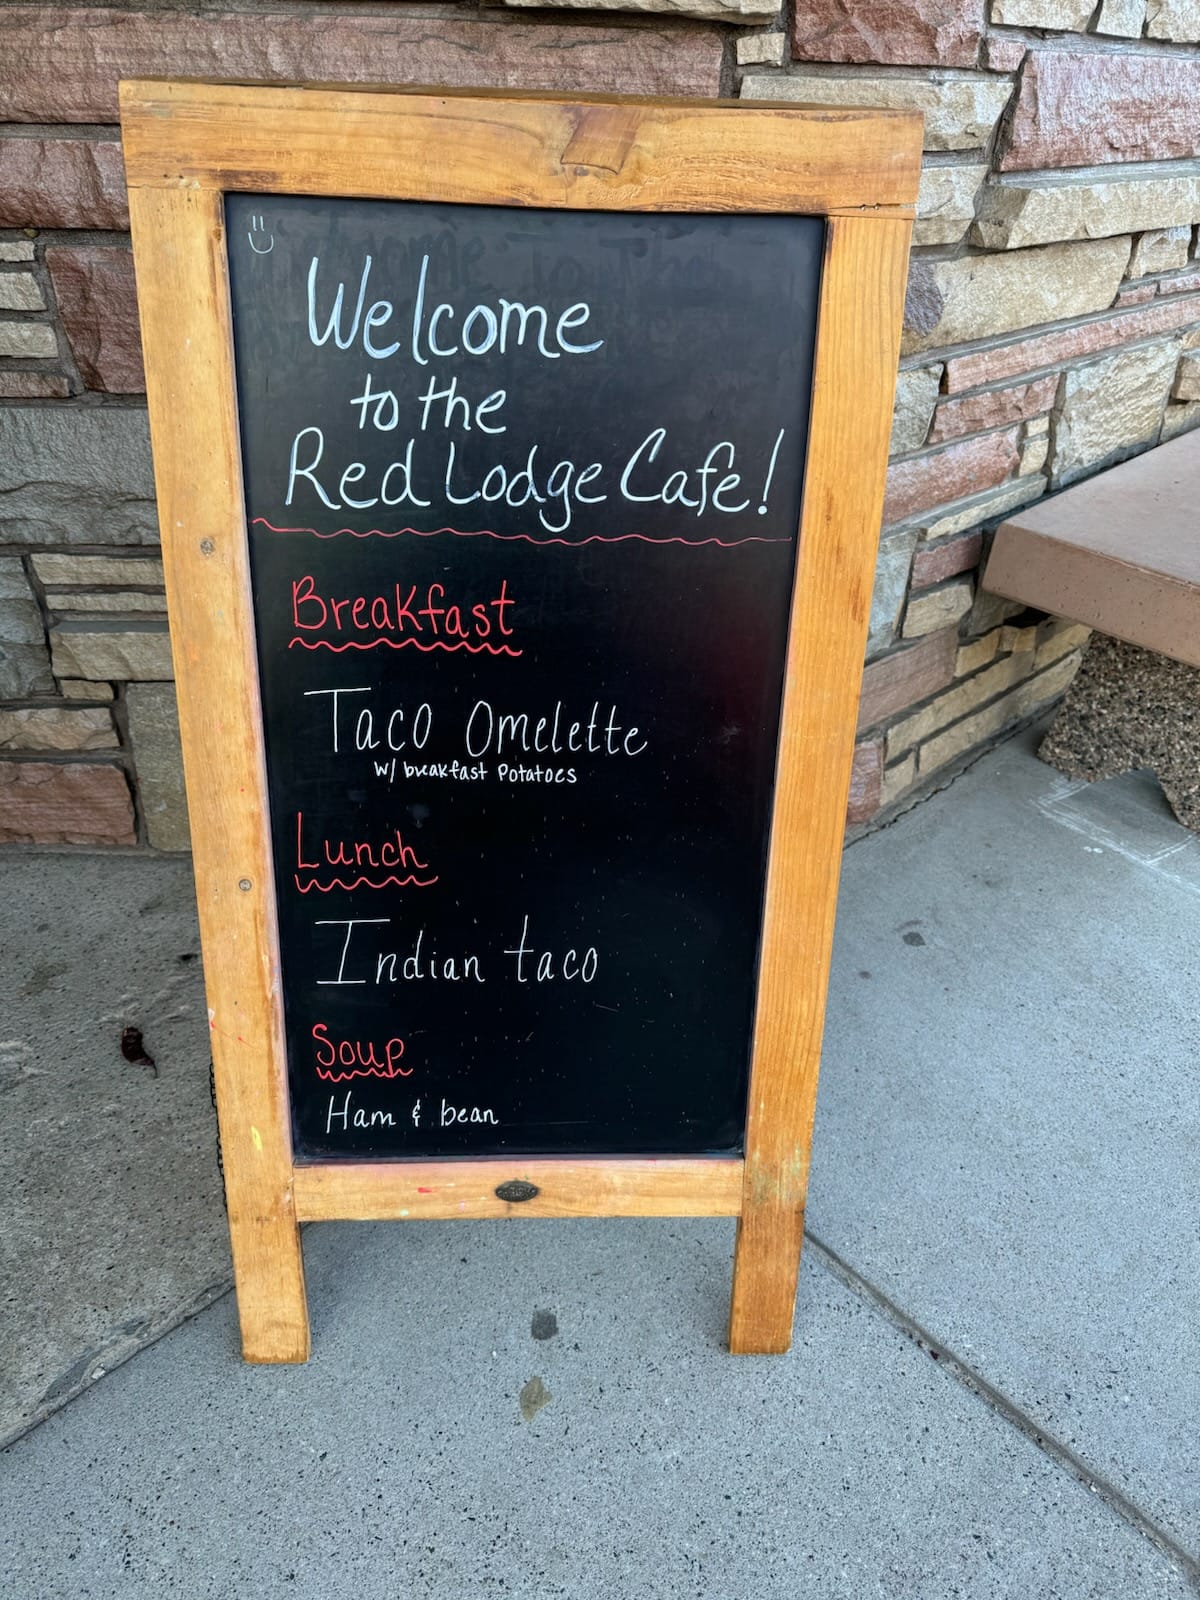 Welcome
to the
Red Lodge Cafe!
Breakfast
Taco Omelette
w/ breakfast Potatoes
Lunch
Indian taco
Soup
Ham & bean